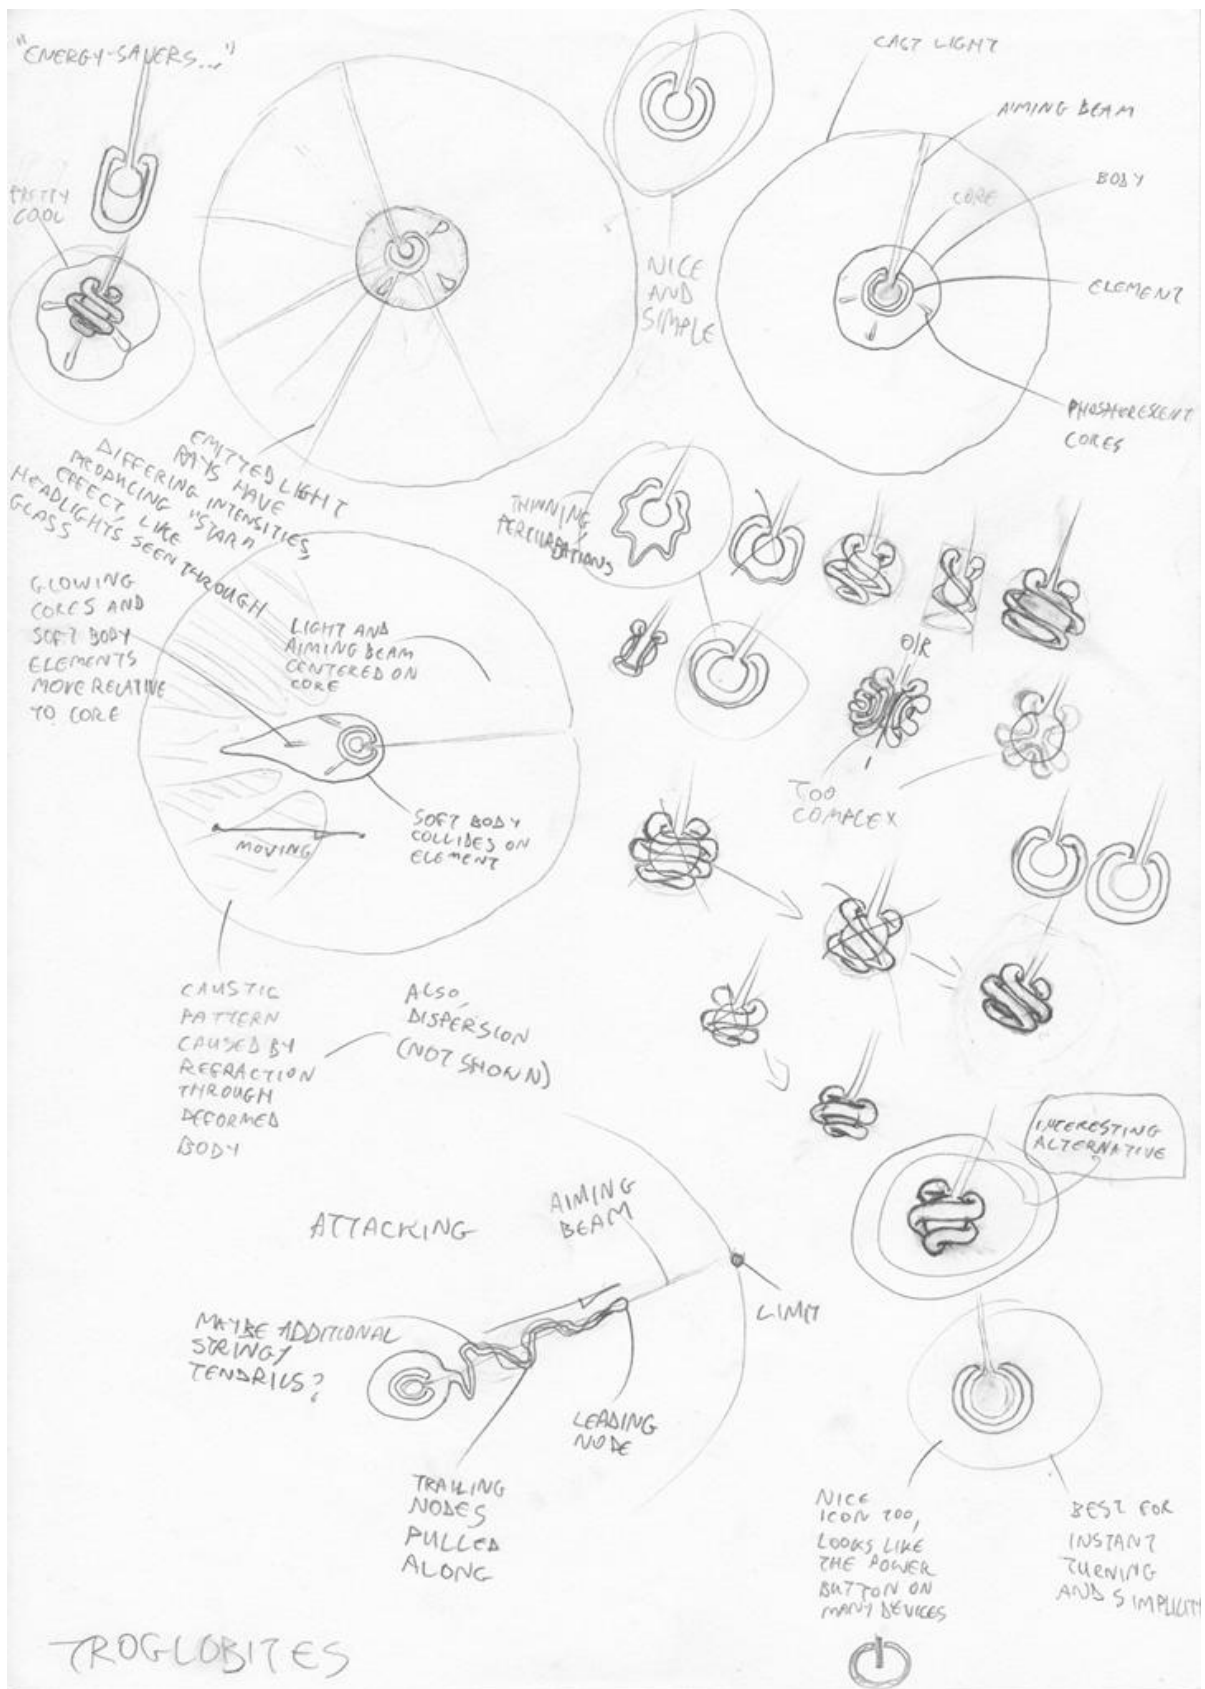 "ENERGY-SAVERS..."
PRETTY
COOL
NICE
AND
SIMPLE
CAST LIGHT
AIMING BEAM
BODY
CORE
ELEMENT
PHOSPHERESCENT
CORES
EMITTED LIGHT
RAYS HAVE
DIFFERING INTENSITIES,
PRODUCING "STAR"
EFFECT, LIKE
HEADLIGHTS SEEN THROUGH
GLASS
THINNING,
PERTURBATIONS
GLOWING
CORES AND
SOFT BODY
ELEMENTS
MOVE RELATIVE
TO CORE
LIGHT AND
AIMING BEAM
CENTERED ON
CORE
MOVING
SOFT BODY
COLLIDES ON
ELEMENT
O/R
TOO
COMPLEX
CAUSTIC
PATTERN
CAUSED BY
REFRACTION
THROUGH
DEFORMED
BODY
ALSO,
DISPERSION
(NOT SHOWN)
INTERESTING
ALTERNATIVE
ATTACKING
AIMING
BEAM
LIMIT
MAYBE ADDITIONAL
STRINGY
TENDRILS?
LEADING
NODE
TRAILING
NODES
PULLED
ALONG
NICE
ICON TOO,
LOOKS LIKE
THE POWER
BUTTON ON
MANY DEVICES
BEST FOR
INSTANT
TURNING
AND SIMPLICITY
TROGLOBITES